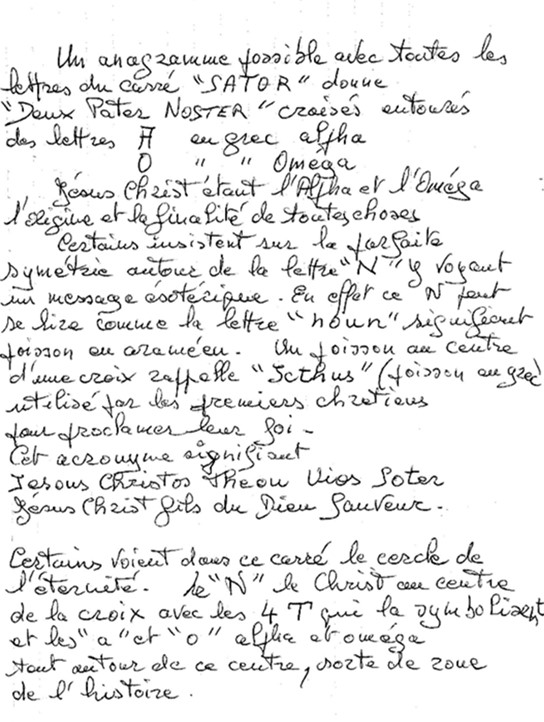 Un anagramme possible avec toutes les
lettres du carré "SATOR" donne
"Deux Pater NOSTER" croisés entourés
des lettres A en grec alpha
O " " Oméga
Jésus Christ étant l'Alpha et l'Oméga
l'origine et la finalité de toutes choses
Certains insistent sur la parfaite
symétrie autour de la lettre "N" y voyant
un message ésotérique. En effet ce N peut
se lire comme la lettre "noun" signifiant
poisson en araméen. Un poisson au centre
d'une croix rappelle "Icthus" (poisson en grec
utilisé par les premiers chrétiens
pour proclamer leur foi -
Cet acronyme signifiant
Iesous Christos Theou Uios Soter
Jésus Christ fils du Dieu Sauveur.
Certains voient dans ce carré le cercle de
l'éternité. le "N" le Christ au centre
de la croix avec les 4 T qui la symbolisent
et les "a" et "o" alpha et oméga
tout autour de ce centre, sorte de roue
de l'histoire.